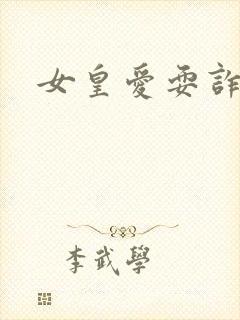 女皇愛耍詐
李武學